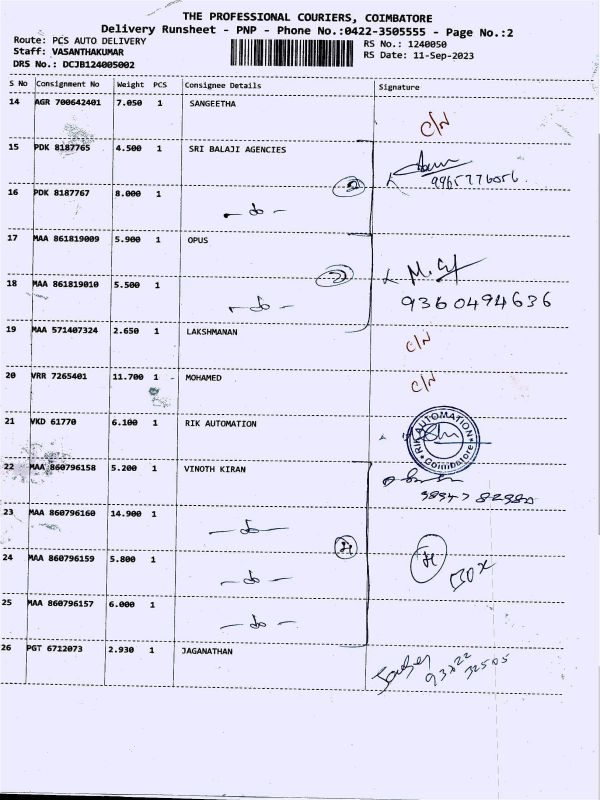 THE PROFESSIONAL COURIERS, COIMBATORE
Delivery Runsheet - PNP - Phone No.:0422-3505555 - Page No.:2
Route: PCS AUTO DELIVERY
RS No.: 1240050
Staff: VASANTHAKUMAR
RS Date: 11-Sep-2023
DRS No.: DCJB124005002
S No Consignment No Weight PCS Consignee Details Signature
14 AGR 700642401 7.050 1 SANGEETHA
C/N
15 PDK 8187765 4.500 1 SRI BALAJI AGENCIES
9965776056
16 PDK 8187767 8.000 1 - do -
2
17 MAA 861819009 5.900 1 OPUS
18 MAA 861819010 5.500 1 - do -
2
9360494636
19 MAA 571407324 2.650 1 LAKSHMANAN
C/N
20 VRR 7265401 11.700 1 MOHAMED
C/N
21 VKD 61770 6.100 1 RIK AUTOMATION
RIK AUTOMATION
Coimbatore
22 MAA 860796158 5.200 1 VINOTH KIRAN
23 MAA 860796160 14.900 1 - do -
24 MAA 860796159 5.800 1 - do -
BOX
25 MAA 860796157 6.000 1 - do -
26 PGT 6712073 2.930 1 JAGANATHAN